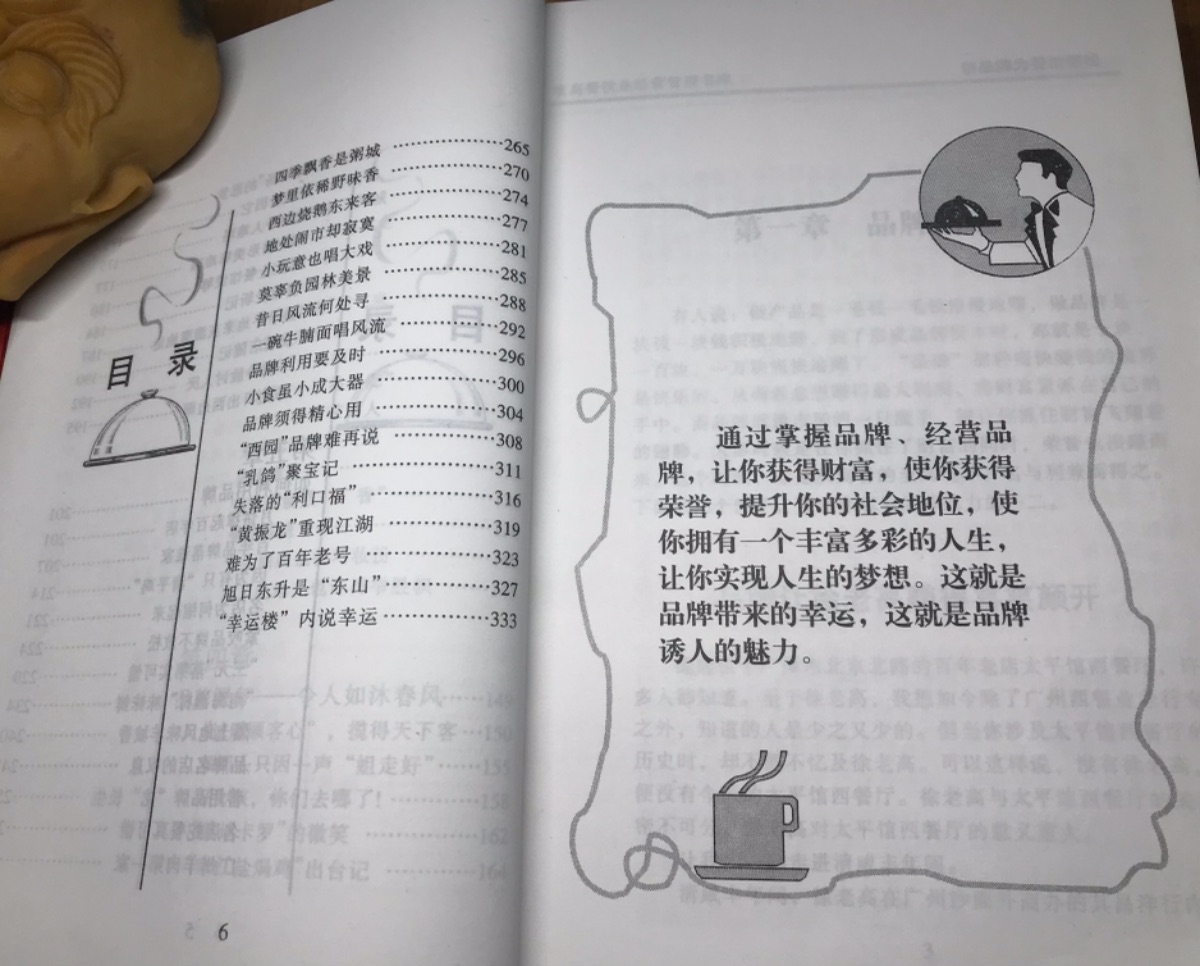 目 录
四季飘香是粥城 ………………265
梦里依稀野味香 ………………270
西边烧鹅东来客 ………………274
地处闹市却寂寞 ………………277
小玩意也唱大戏 ………………281
莫辜负园林美景 ………………285
昔日风流何处寻 ………………288
一碗牛腩面唱风流 ………………292
品牌利用要及时 ………………296
小食虽小成大器 ………………300
品牌须得精心用 ………………304
“西园”品牌难再说 ………………308
“乳鸽”聚宝记 ………………311
失落的“利口福” ………………316
“黄振龙”重现江湖 ………………319
难为了百年老号 ………………323
旭日东升是“东山” ………………327
“幸运楼”内说幸运 ………………333
6
通过掌握品牌、经营品
牌，让你获得财富，使你获得
荣誉，提升你的社会地位，使
你拥有一个丰富多彩的人生，
让你实现人生的梦想。这就是
品牌带来的幸运，这就是品牌
诱人的魅力。